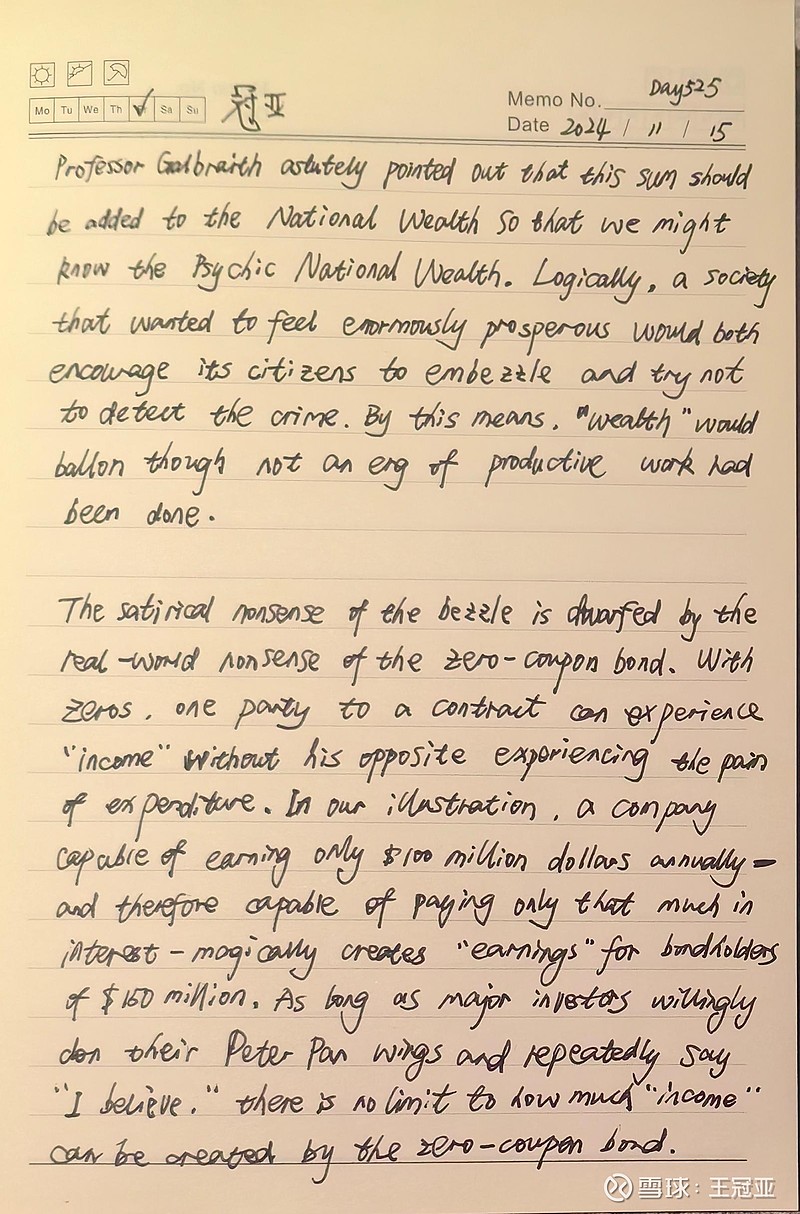 Mo Tu We Th Sa Su 冠亚
Memo No. Day525
Date 2024 / 11 / 15
Professor Galbraith astutely pointed out that this sum should
be added to the National Wealth so that we might
know the Psychic National Wealth. Logically, a society
that wanted to feel enormously prosperous would both
encourage its citizens to embezzle and try not
to detect the crime. By this means, "wealth" would
ballon though not an erg of productive work had
been done.
The satirical nonsense of the bezzle is dwarfed by the
real-world nonsense of the zero-coupon bond. With
zeros, one party to a contract can experience
"income" without his opposite experiencing the pain
of expenditure. In our illustration, a company
capable of earning only $100 million dollars annually-
and therefore capable of paying only that much in
interest-magically creates "earnings" for bondholders
of $150 million. As long as major investors willingly
don their Peter Pan wings and repeatedly say
"I believe." there is no limit to how much "income"
can be created by the zero-coupon bond.
雪球：王冠亚